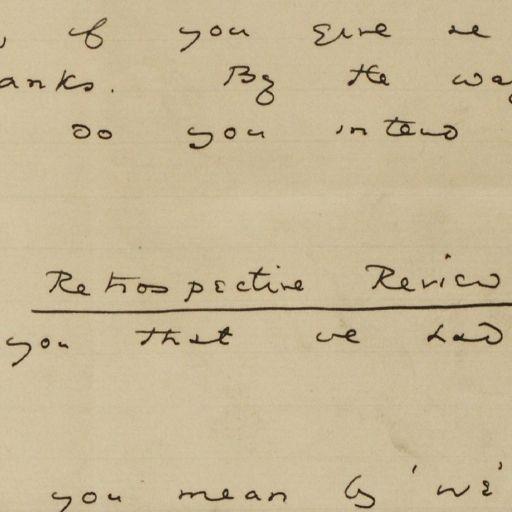 , if you give me
anks. By the way
Do you intend
Retrospective Review
you that we had
you mean by 'we'